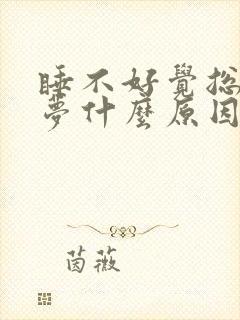 睡不好覺總
夢什麼原因
茵薇